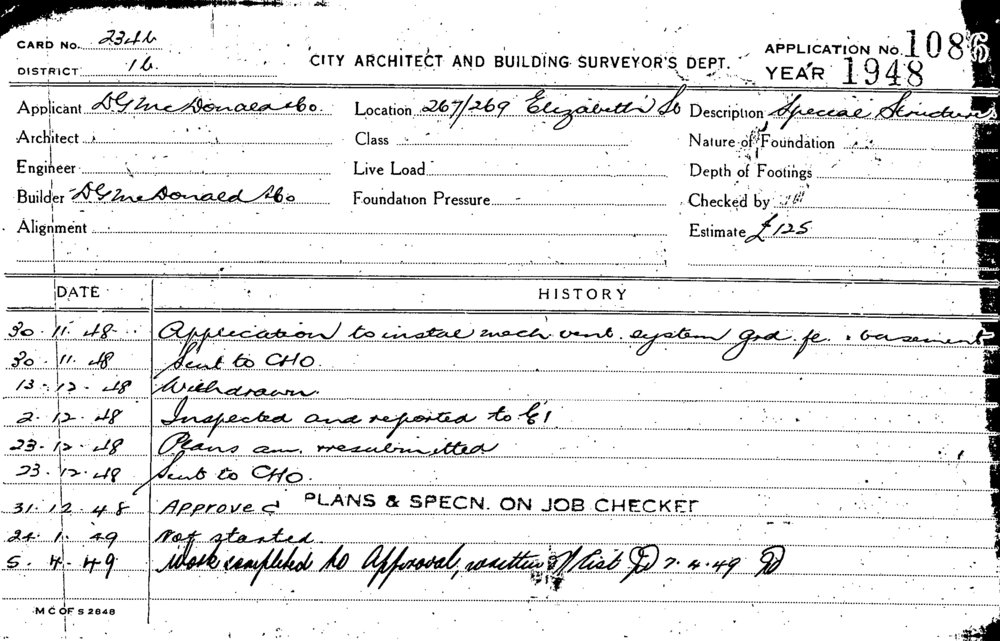 CARD No. 2346
DISTRICT 16
CITY ARCHITECT AND BUILDING SURVEYOR'S DEPT.
APPLICATION No. 1086
YEAR 1948
Applicant D G McDonald & Co. Location 267/269 Elizabeth St Description Special Structures
Architect Class Nature of Foundation
Engineer Live Load Depth of Footings
Builder D G McDonald & Co Foundation Pressure Checked by
Alignment Estimate £125
DATE HISTORY
30.11.48 Application to instal mech vent. system Grd. fl. & basement
30.11.48 Sent to CHO.
13.12.48 Withdrawn.
2.12.48 Inspected and reported to
23.12.48 Plans am. resubmitted
23.12.48 Sent to CHO.
31.12.48 APPROVED PLANS & SPECN. ON JOB CHECKED
24.1.49 Not started.
5.4.49 Work completed to Approval, 7.4.49
M C OF S 2848